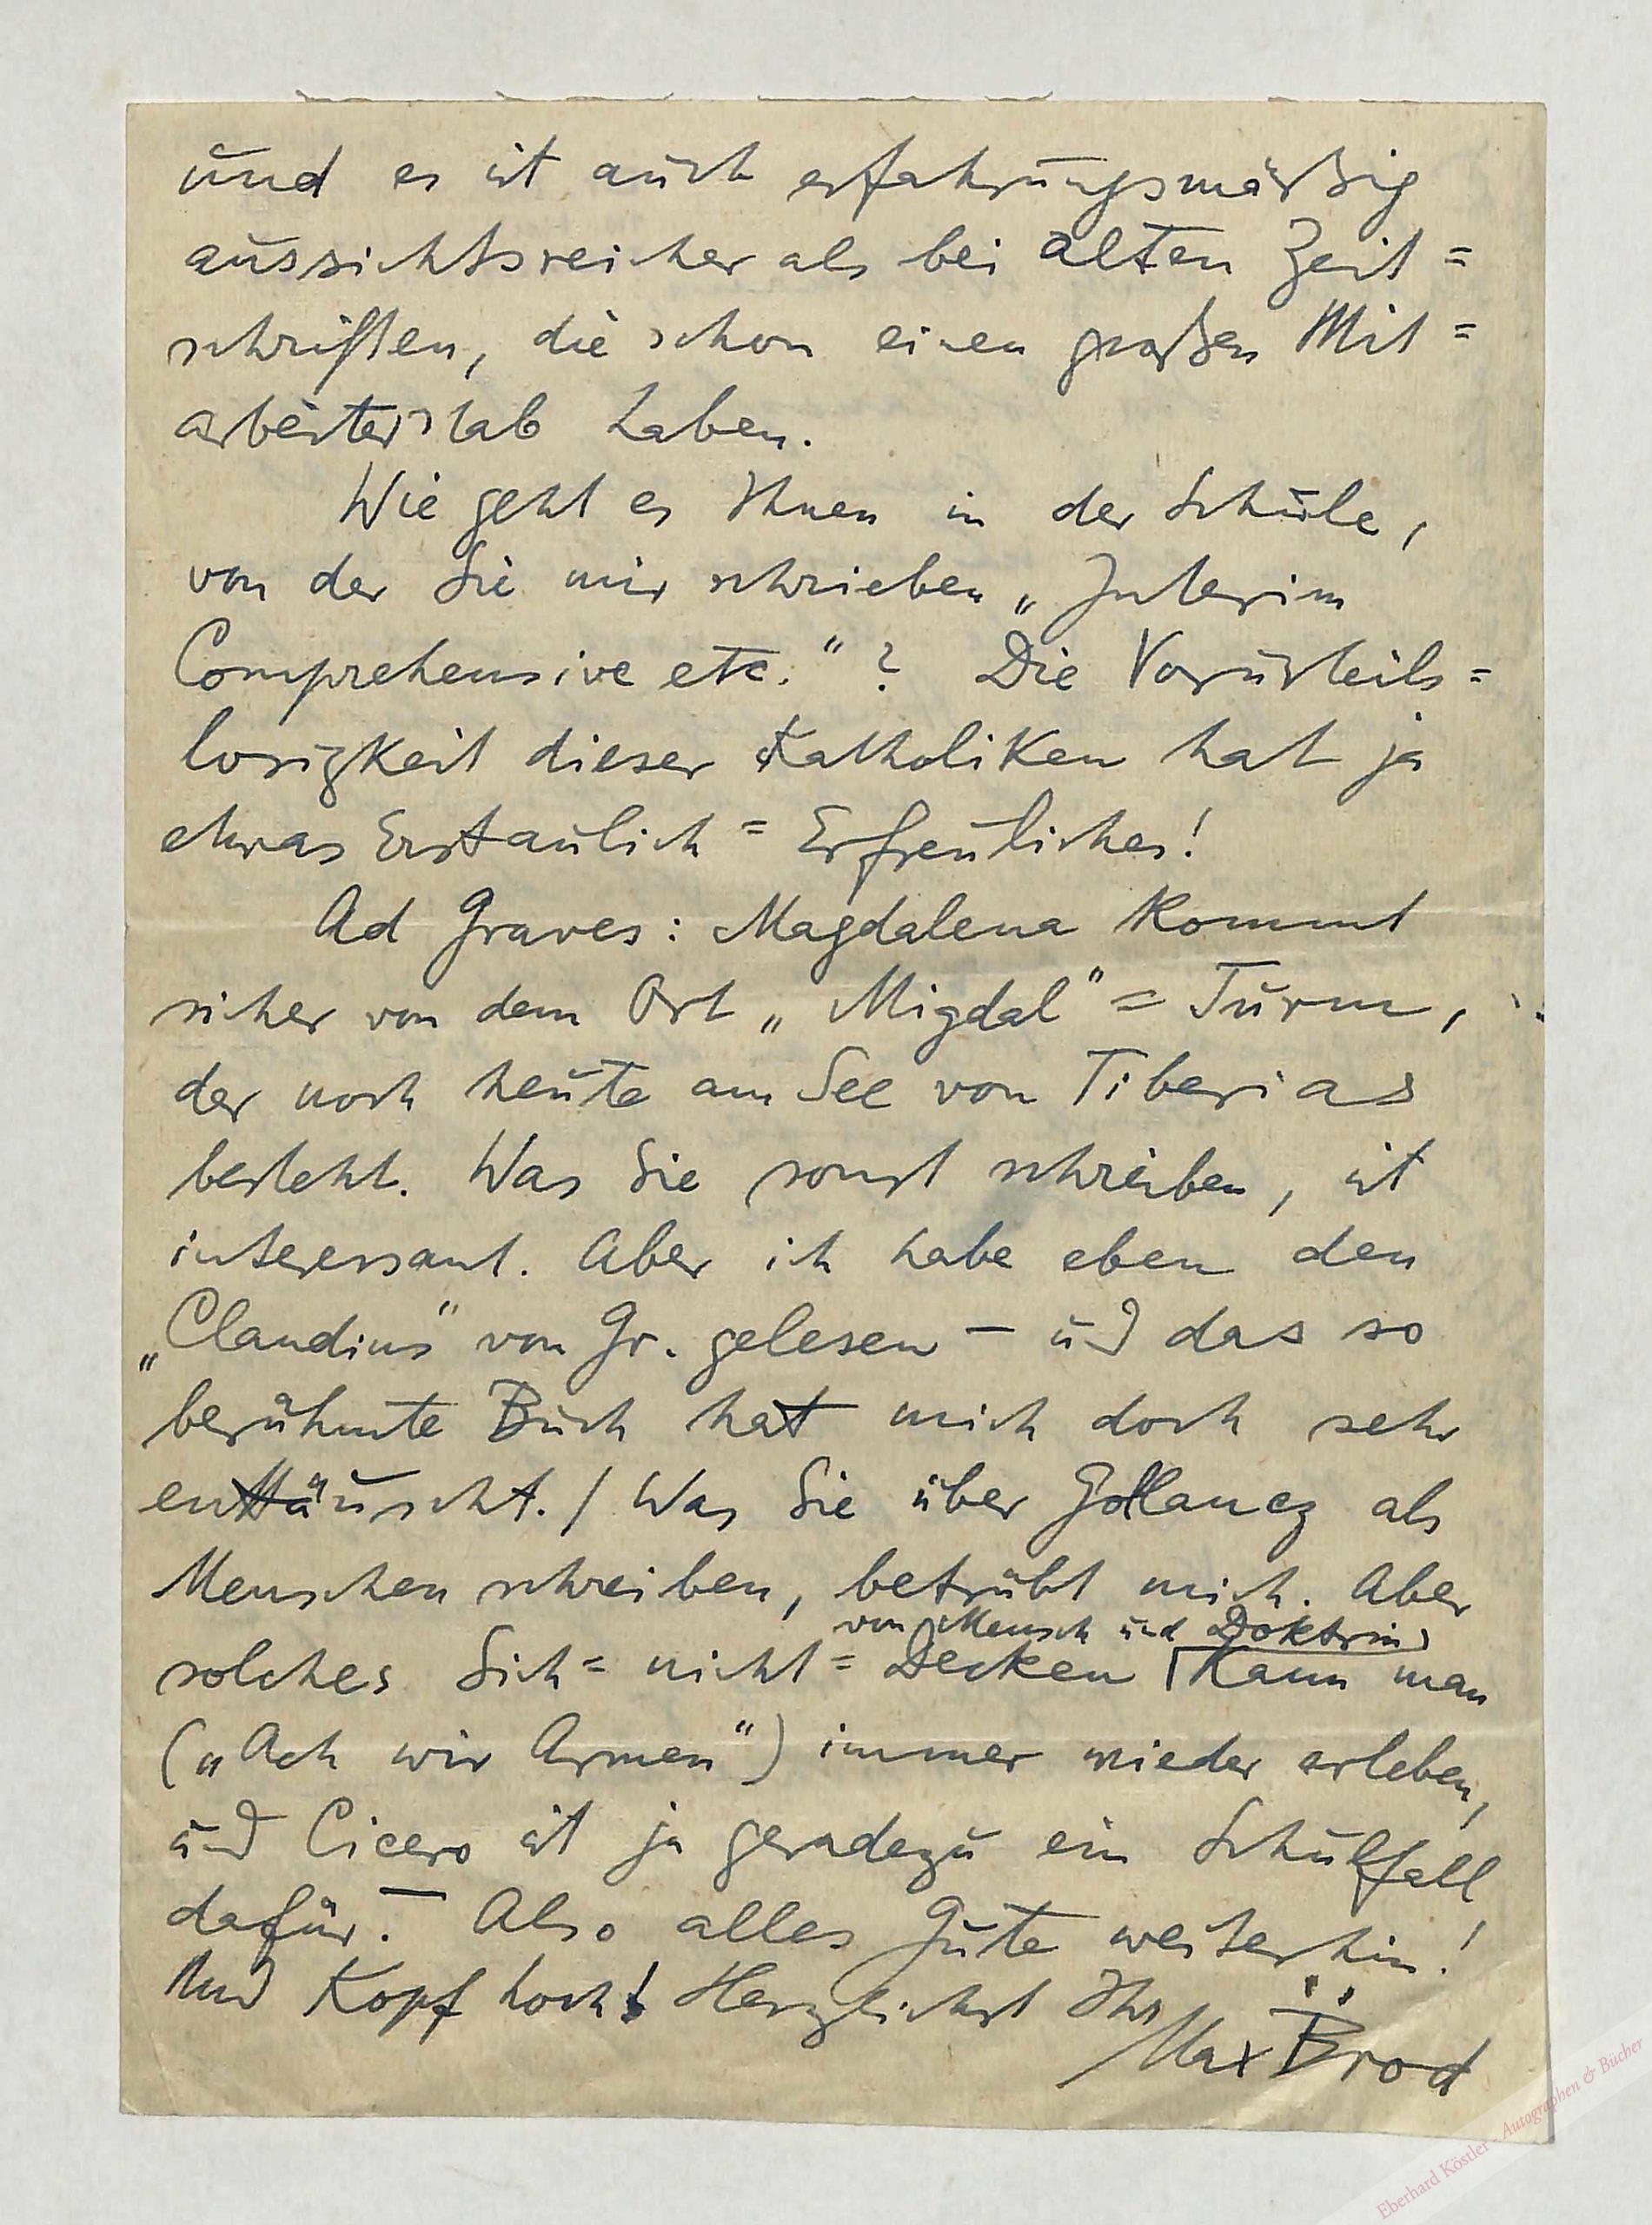 und es ist auch erfahrungsmäßig
aussichtsreicher als bei alten Zeit=
schriften, die schon einen großen Mit=
arbeiterstab haben.
Wie geht es Ihnen in der Schule,
von der Sie mir schrieben „Interim
Comprehensive etc.“? Die Vorurteils=
losigkeit dieser Katholiken hat ja
etwas Erstaunlich=Erfreuliches!
Ad Graves: Magdalena kommt
sicher von dem Ort „Migdal“ = Turm,
der noch heute am See von Tiberias
besteht. Was Sie sonst schreiben, ist
interessant. Aber ich habe eben den
„Claudius“ von Gr. gelesen – und das so
berühmte Buch hat mich doch sehr
enttäuscht. / Was Sie über Gollancz als
Menschen schreiben, betrübt mich. Aber
von Mensch und Doktrin
solches Sich=nicht=Decken kann man
(„Ach wir Armen“) immer wieder erleben,
und Cicero ist ja geradezu ein Schulfall
dafür. – Also alles Gute weiterhin!
Und Kopf hoch! Herzlichst Ihr
Max Brod
Eberhard Köstler - Autographen & Bücher